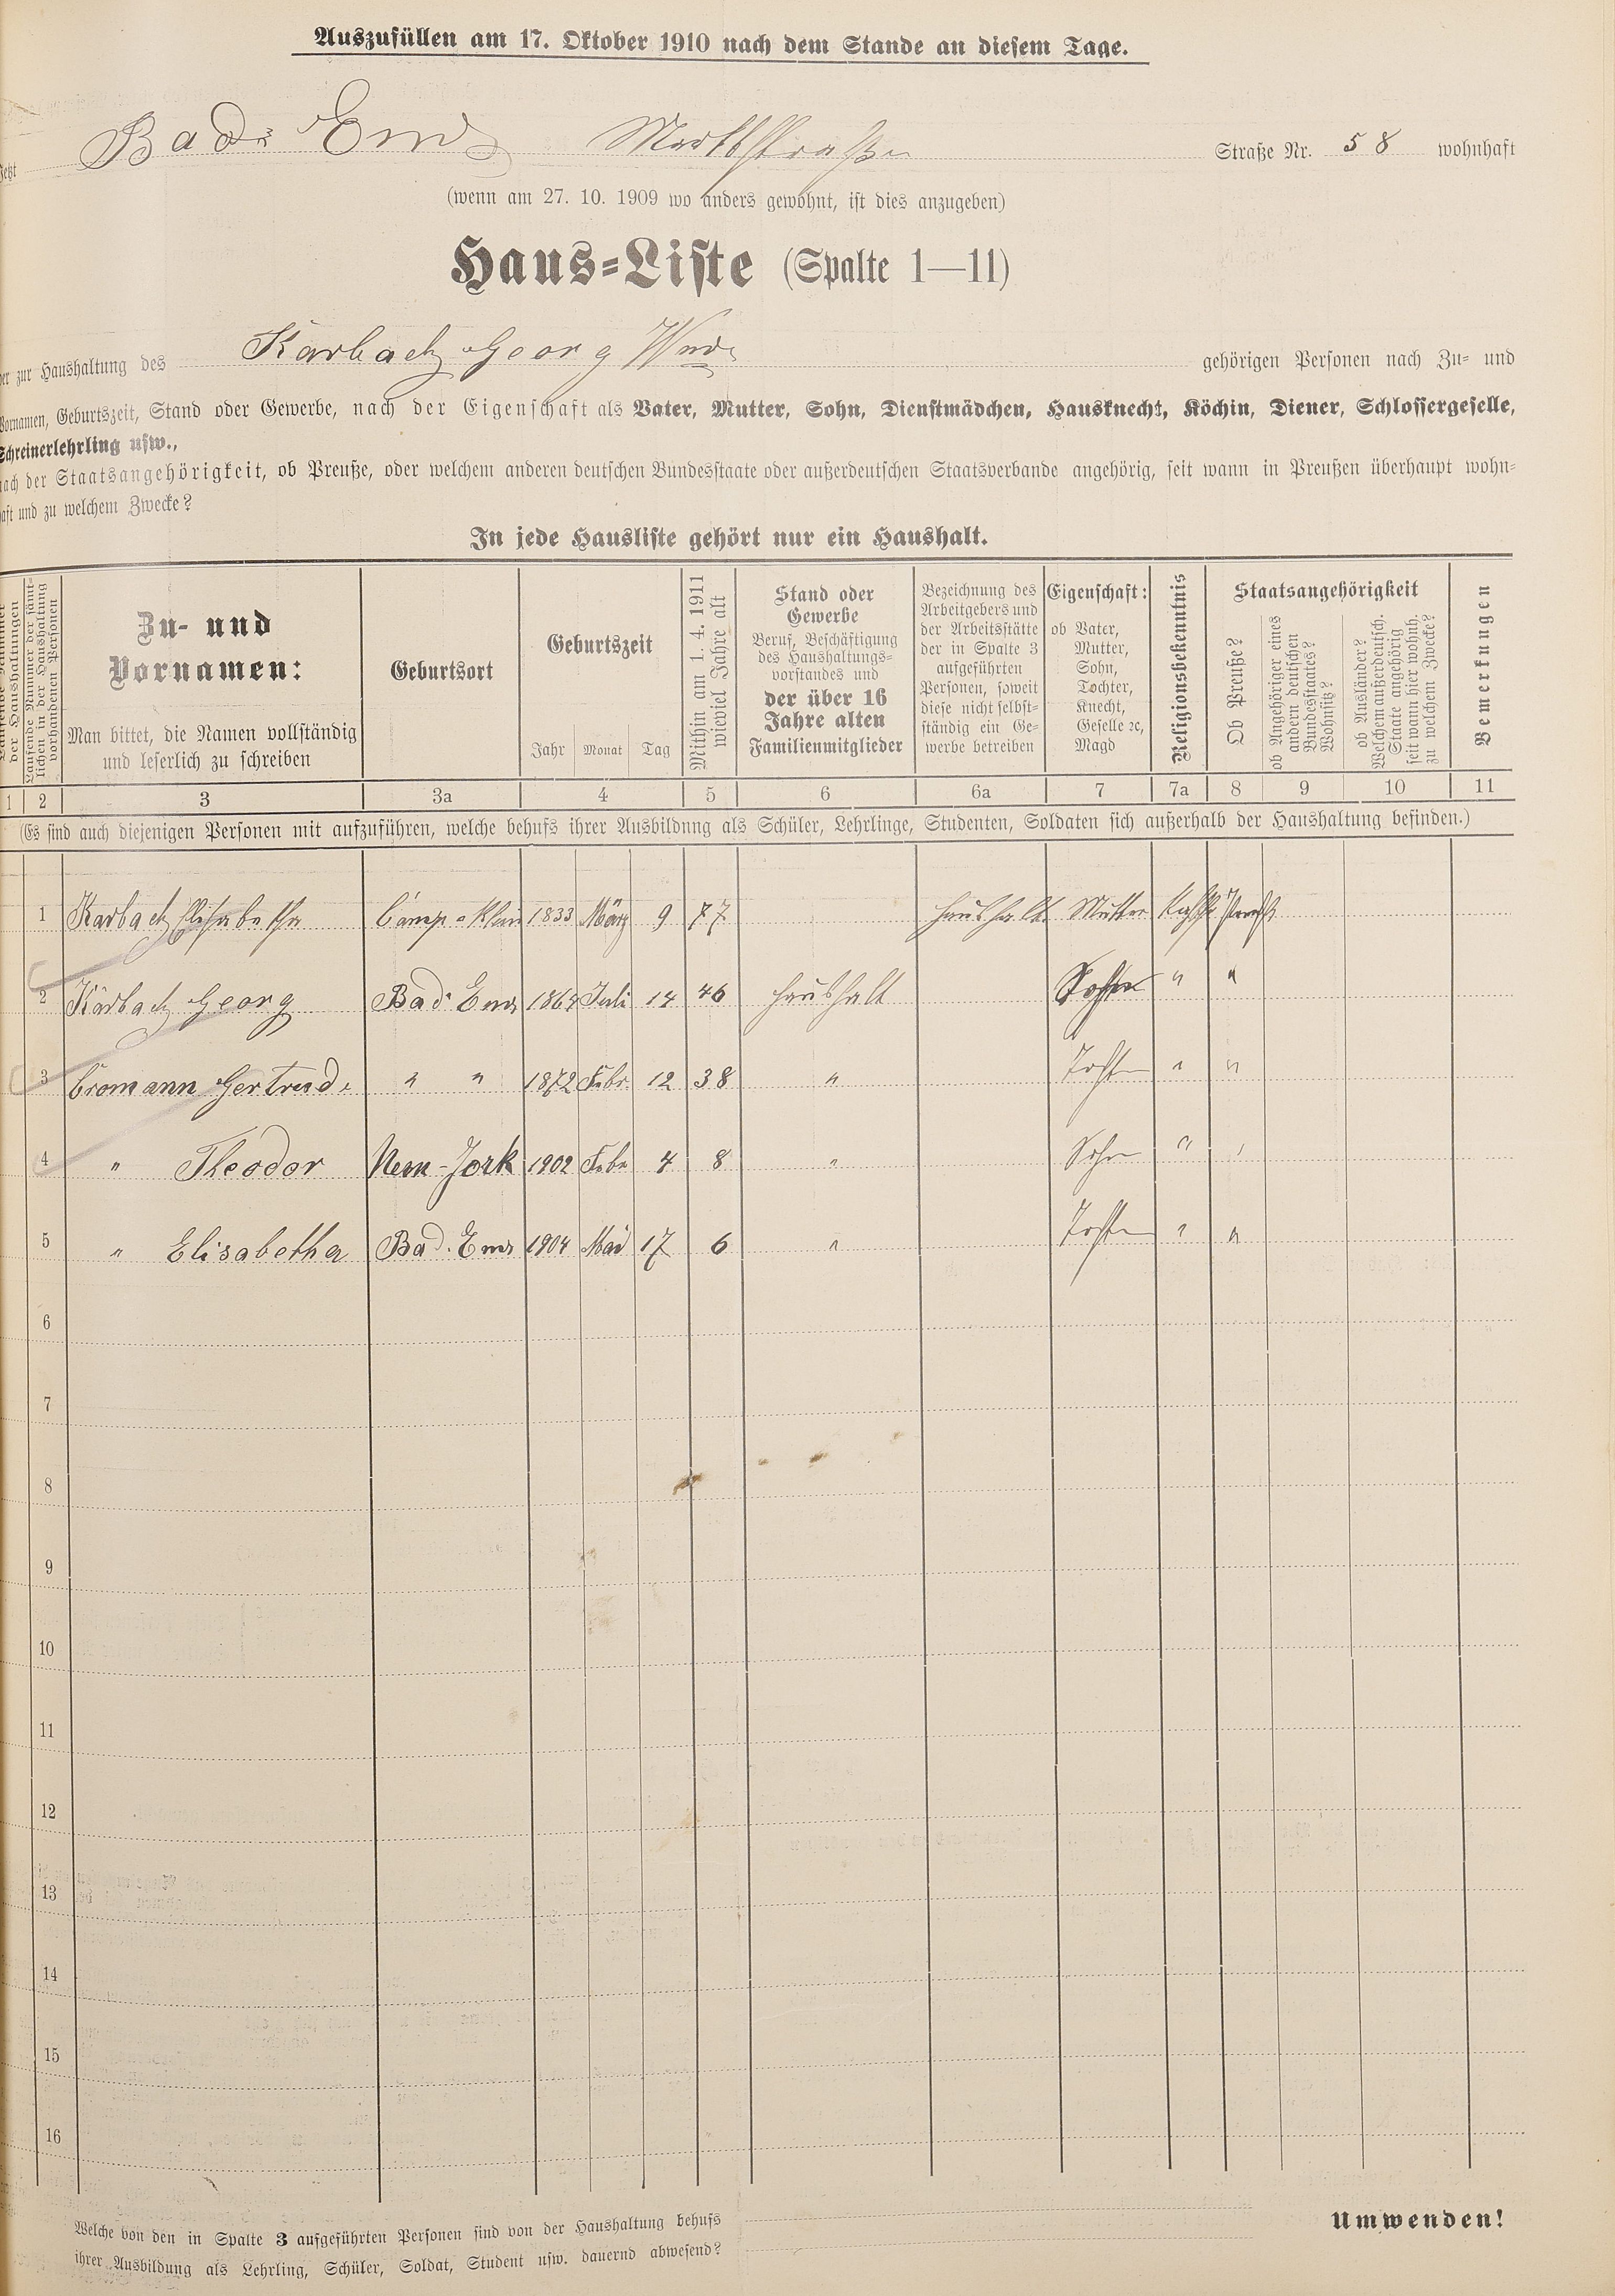 Auszufüllen am 17. Oktober 1910 nach dem Stande an diesem Tage.
Jetzt Bad-Ems Marktstraße Straße Nr. 58 wohnhaft
(wenn am 27. 10. 1909 wo anders gewohnt, ist dies anzugeben)
Haus-Liste (Spalte 1—11)
der zur Haushaltung des Karbach Georg Wwe. gehörigen Personen nach Zu- und
Vornamen, Geburtszeit, Stand oder Gewerbe, nach der Eigenschaft als Vater, Mutter, Sohn, Dienstmädchen, Hausknecht, Köchin, Diener, Schlossergeselle,
Schreinerlehrling usw.,
nach der Staatsangehörigkeit, ob Preuße, oder welchem anderen deutschen Bundesstaate oder außerdeutschen Staatsverbande angehörig, seit wann in Preußen überhaupt wohn-
haft und zu welchem Zwecke?
In jede Hausliste gehört nur ein Haushalt.
der Haushaltungen
Laufende Nummer der sämt-
lichen in der Haushaltung
vorhandenen Personen
Zu- und
Vornamen:
Man bittet, die Namen vollständig
und leserlich zu schreiben
Geburtsort
Geburtszeit
Jahr Monat Tag
Mithin am 1. 4. 1911
wieviel Jahre alt
Stand oder
Gewerbe
Beruf, Beschäftigung
des Haushaltungs-
vorstandes und
der über 16
Jahre alten
Familienmitglieder
Bezeichnung des
Arbeitgebers und
der Arbeitsstätte
der in Spalte 3
aufgeführten
Personen, soweit
diese nicht selbst-
ständig ein Ge-
werbe betreiben
Eigenschaft:
ob Vater,
Mutter,
Sohn,
Tochter,
Knecht,
Geselle ꝛc,
Magd
Religionsbekenntnis
Staatsangehörigkeit
Ob Preuße?
ob Angehöriger eines
andern deutschen
Bundesstaates?
Wohnsitz?
ob Ausländer?
Welchem außerdeutsch.
Staate angehörig
seit wann hier wohnh.
zu welchem Zwecke?
Bemerkungen
1 2 3 3a 4 5 6 6a 7 7a 8 9 10 11
(Es sind auch diejenigen Personen mit aufzuführen, welche behufs ihrer Ausbildung als Schüler, Lehrlinge, Studenten, Soldaten sich außerhalb der Haushaltung befinden.)
1 Karbach Elisabetha 1833 März 9 77 Haushalt Mutter
2 Karbach Georg Bad-Ems 1864 Juli 14 46 Haushalt " "
3 Cromann Gertrud " " 1872 Febr. 12 38 " Tochter " "
4 " Theodor New-Jork 1902 Febr 4 8 " Sohn " "
5 " Elisabetha Bad-Ems 1904 Mai 17 6 " Tochter " "
6
7
8
9
10
11
12
13
14
15
16
Welche von den in Spalte 3 aufgeführten Personen sind von der Haushaltung behufs
ihrer Ausbildung als Lehrling, Schüler, Soldat, Student usw. dauernd abwesend?
Umwenden!